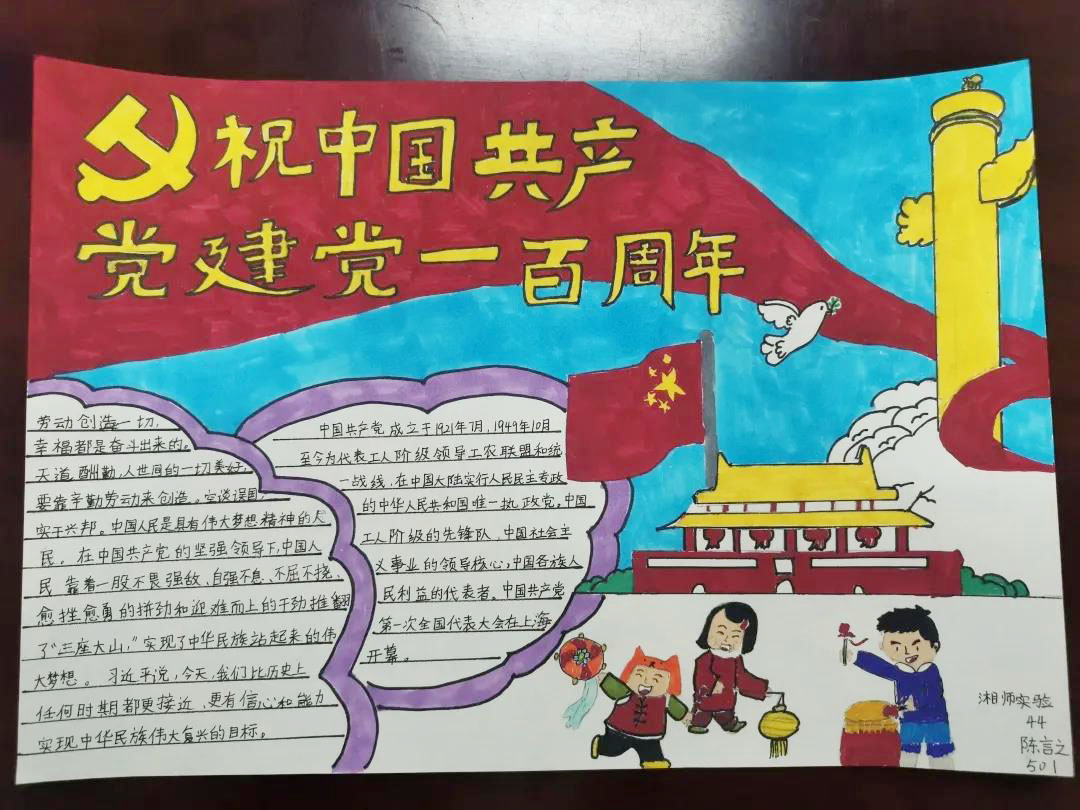 祝中国共产
党建党一百周年
劳动创造一切,
幸福都是奋斗出来的。
天道酬勤,人世间的一切美好,
要靠辛勤劳动来创造。空谈误国,
实干兴邦。中国人民是具有伟大梦想精神的人
民。在中国共产党的坚强领导下,中国人
民靠着一股不畏强敌、自强不息、不屈不挠、
愈挫愈勇的拼劲和迎难而上的干劲推翻
了“三座大山,”实现了中华民族站起来的伟
大梦想。习近平说,今天,我们比历史上
任何时期都更接近、更有信心和能力
实现中华民族伟大复兴的目标。
中国共产党成立于1921年7月,1949年10月
至今为代表工人阶级领导工农联盟和统
一战线,在中国大陆实行人民民主专政
的中华人民共和国唯一执政党。中国
工人阶级的先锋队、中国社会主
义事业的领导核心,中国各族人
民利益的代表者。中国共产党
第一次全国代表大会在上海
开幕。
湘师实验
44
陈言之
501